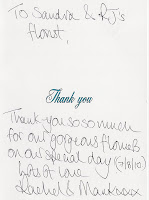 To Sandra & RJ's
florist,
Thank you
Thank-you so so much
for our gorgeous flowers
on our special day (7/8/10)
Lots of love
Rachel & Mark xxx